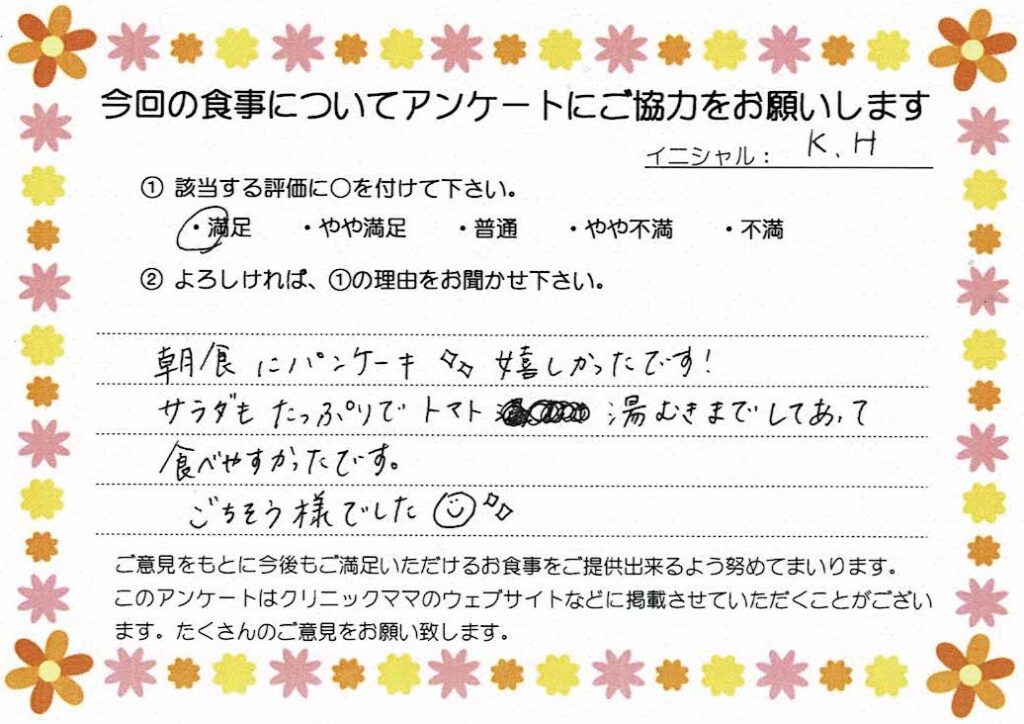 今回の食事についてアンケートにご協力をお願いします
イニシャル： K.H
① 該当する評価に○を付けて下さい。
・満足 ・やや満足 ・普通 ・やや不満 ・不満
② よろしければ、①の理由をお聞かせ下さい。
朝食にパンケーキ 嬉しかったです!
サラダもたっぷりでトマト 湯むきまでしてあって
食べやすかったです。
ごちそう様でした
ご意見をもとに今後もご満足いただけるお食事をご提供出来るよう努めてまいります。
このアンケートはクリニックママのウェブサイトなどに掲載させていただくことがござい
ます。たくさんのご意見をお願い致します。